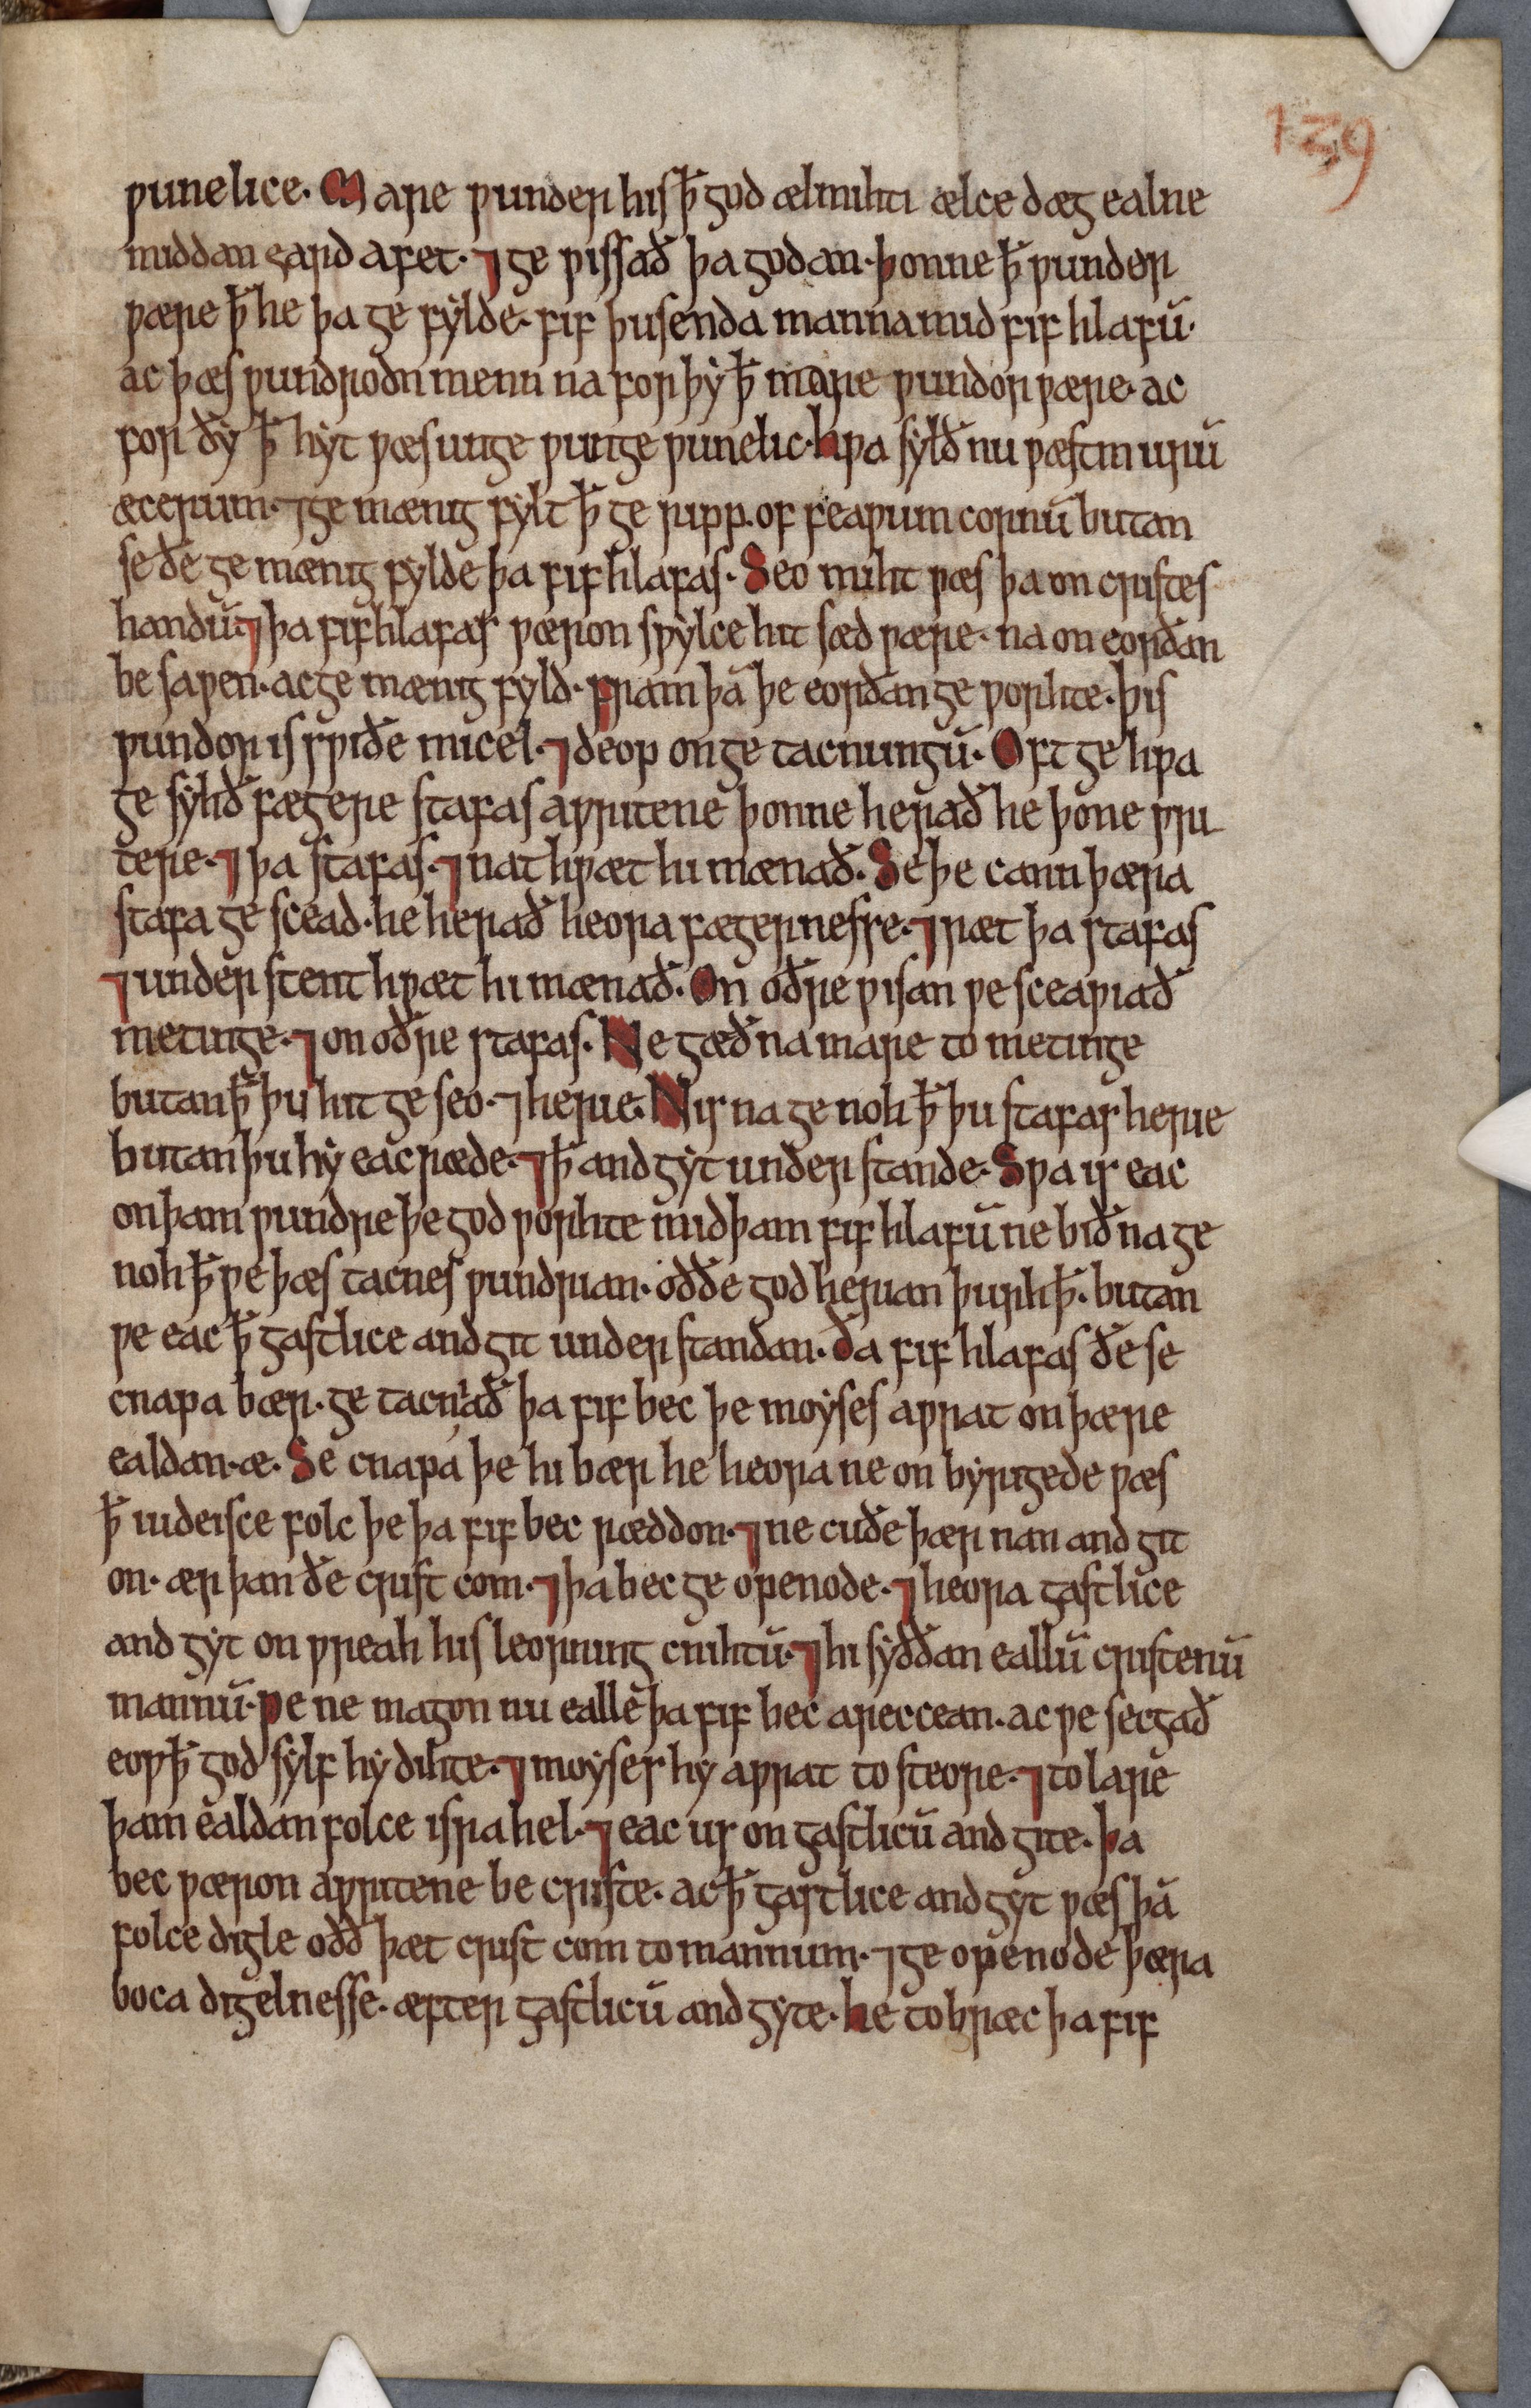 139
ƿunelice. Mare ƿunder his ꝥ god ælmihti ælce dæg ealne
middan eard afet. ⁊ ge ƿissað þa godan. þonne ꝥ ƿunder
ƿære ꝥ he þa ge fylde. fif þusenda manna mid fif hlafū.
ac þæs ƿundrodn menn na for þẏ ꝥ mare ƿundor ƿære. ac
for ðẏ ꝥ hẏt ƿæs unge ƿunge ƿunelic. hƿa sylð nu ƿæstm urū
æcerum. ⁊ ge mænig fylt ꝥ ge ripp. of feaƿum cornū butan
se ðe ge mænig fylde þa fif hlafas. Seo miht ƿæs þa on cristes
handū. ⁊ þa fif hlafas ƿæron sƿẏlce hit sæd ƿære. na on eorðan
be saƿen. ac ge mænig fyld. fram þā þe eorðan ge ƿorhte. þis
ƿundor is sƿiðe micel. ⁊ deop on ge tacnungū. Oft ge hƿa
ge sẏhð fægere stafas aƿritene þonne herað he þone ƿri
tere. ⁊ þa stafas. ⁊ nat hƿæt hi mænað. Se þe cann þæra
stafa ge scead. he herað heora fægernesse. ⁊ ræt þa stafas
⁊ under stent hƿæt hi mænað. On oðre ƿisan ƿe sceaƿiað
metinge. ⁊ on oðre stafas. Ne gæð na mare to metinge
butan ꝥ þu hit ge seo. ⁊ herie. Nis na ge noh ꝥ þu stafas herie
butan þu hẏ eac ræde. ⁊ ꝥ andgẏt under stande. Sƿa is eac
on þam ƿundre þe god ƿorhte mid þam fif hlafū ne bið na ge
noh ꝥ ƿe þæs tacnes ƿundrian. oððe god herian þurh ꝥ. butan
ƿe eac ꝥ gastlice andgit under standan. Ða fif hlafas ðe se
cnapa bær. ge tacniað þa fif bec þe moẏses aƿrat on þære
ealdan. æ. Se cnapa þe hi bær he heora ne on bẏrigede ƿæs
ꝥ iudeisce folc þe þa fif bec ræddon. ⁊ ne cuðe þær nan andgit
on. ær þan ðe crist com. ⁊ þa bec ge openode. ⁊ heora gastlice
andgẏt on ƿreah his leorning cnihtū. ⁊ hi sẏððan eallū cristenū
mannū. ƿe ne magon nu ealle þa fif bec areccean. ac ƿe secgað
eoƿ ꝥ god sẏlf hẏ dihte. ⁊ moẏses hẏ aƿrat to steore. ⁊ to lare
þam ealdan folce israhel. ⁊ eac us on gastlicū andgite. þa
bec ƿæron aƿritene be criste. ac ꝥ gastlice andgẏt ƿæs þā
folce digle oðð þæt crist com to mannum. ⁊ ge openode þæra
boca digelnesse. æfter gastlicū andgẏte. he tobræc þa fif